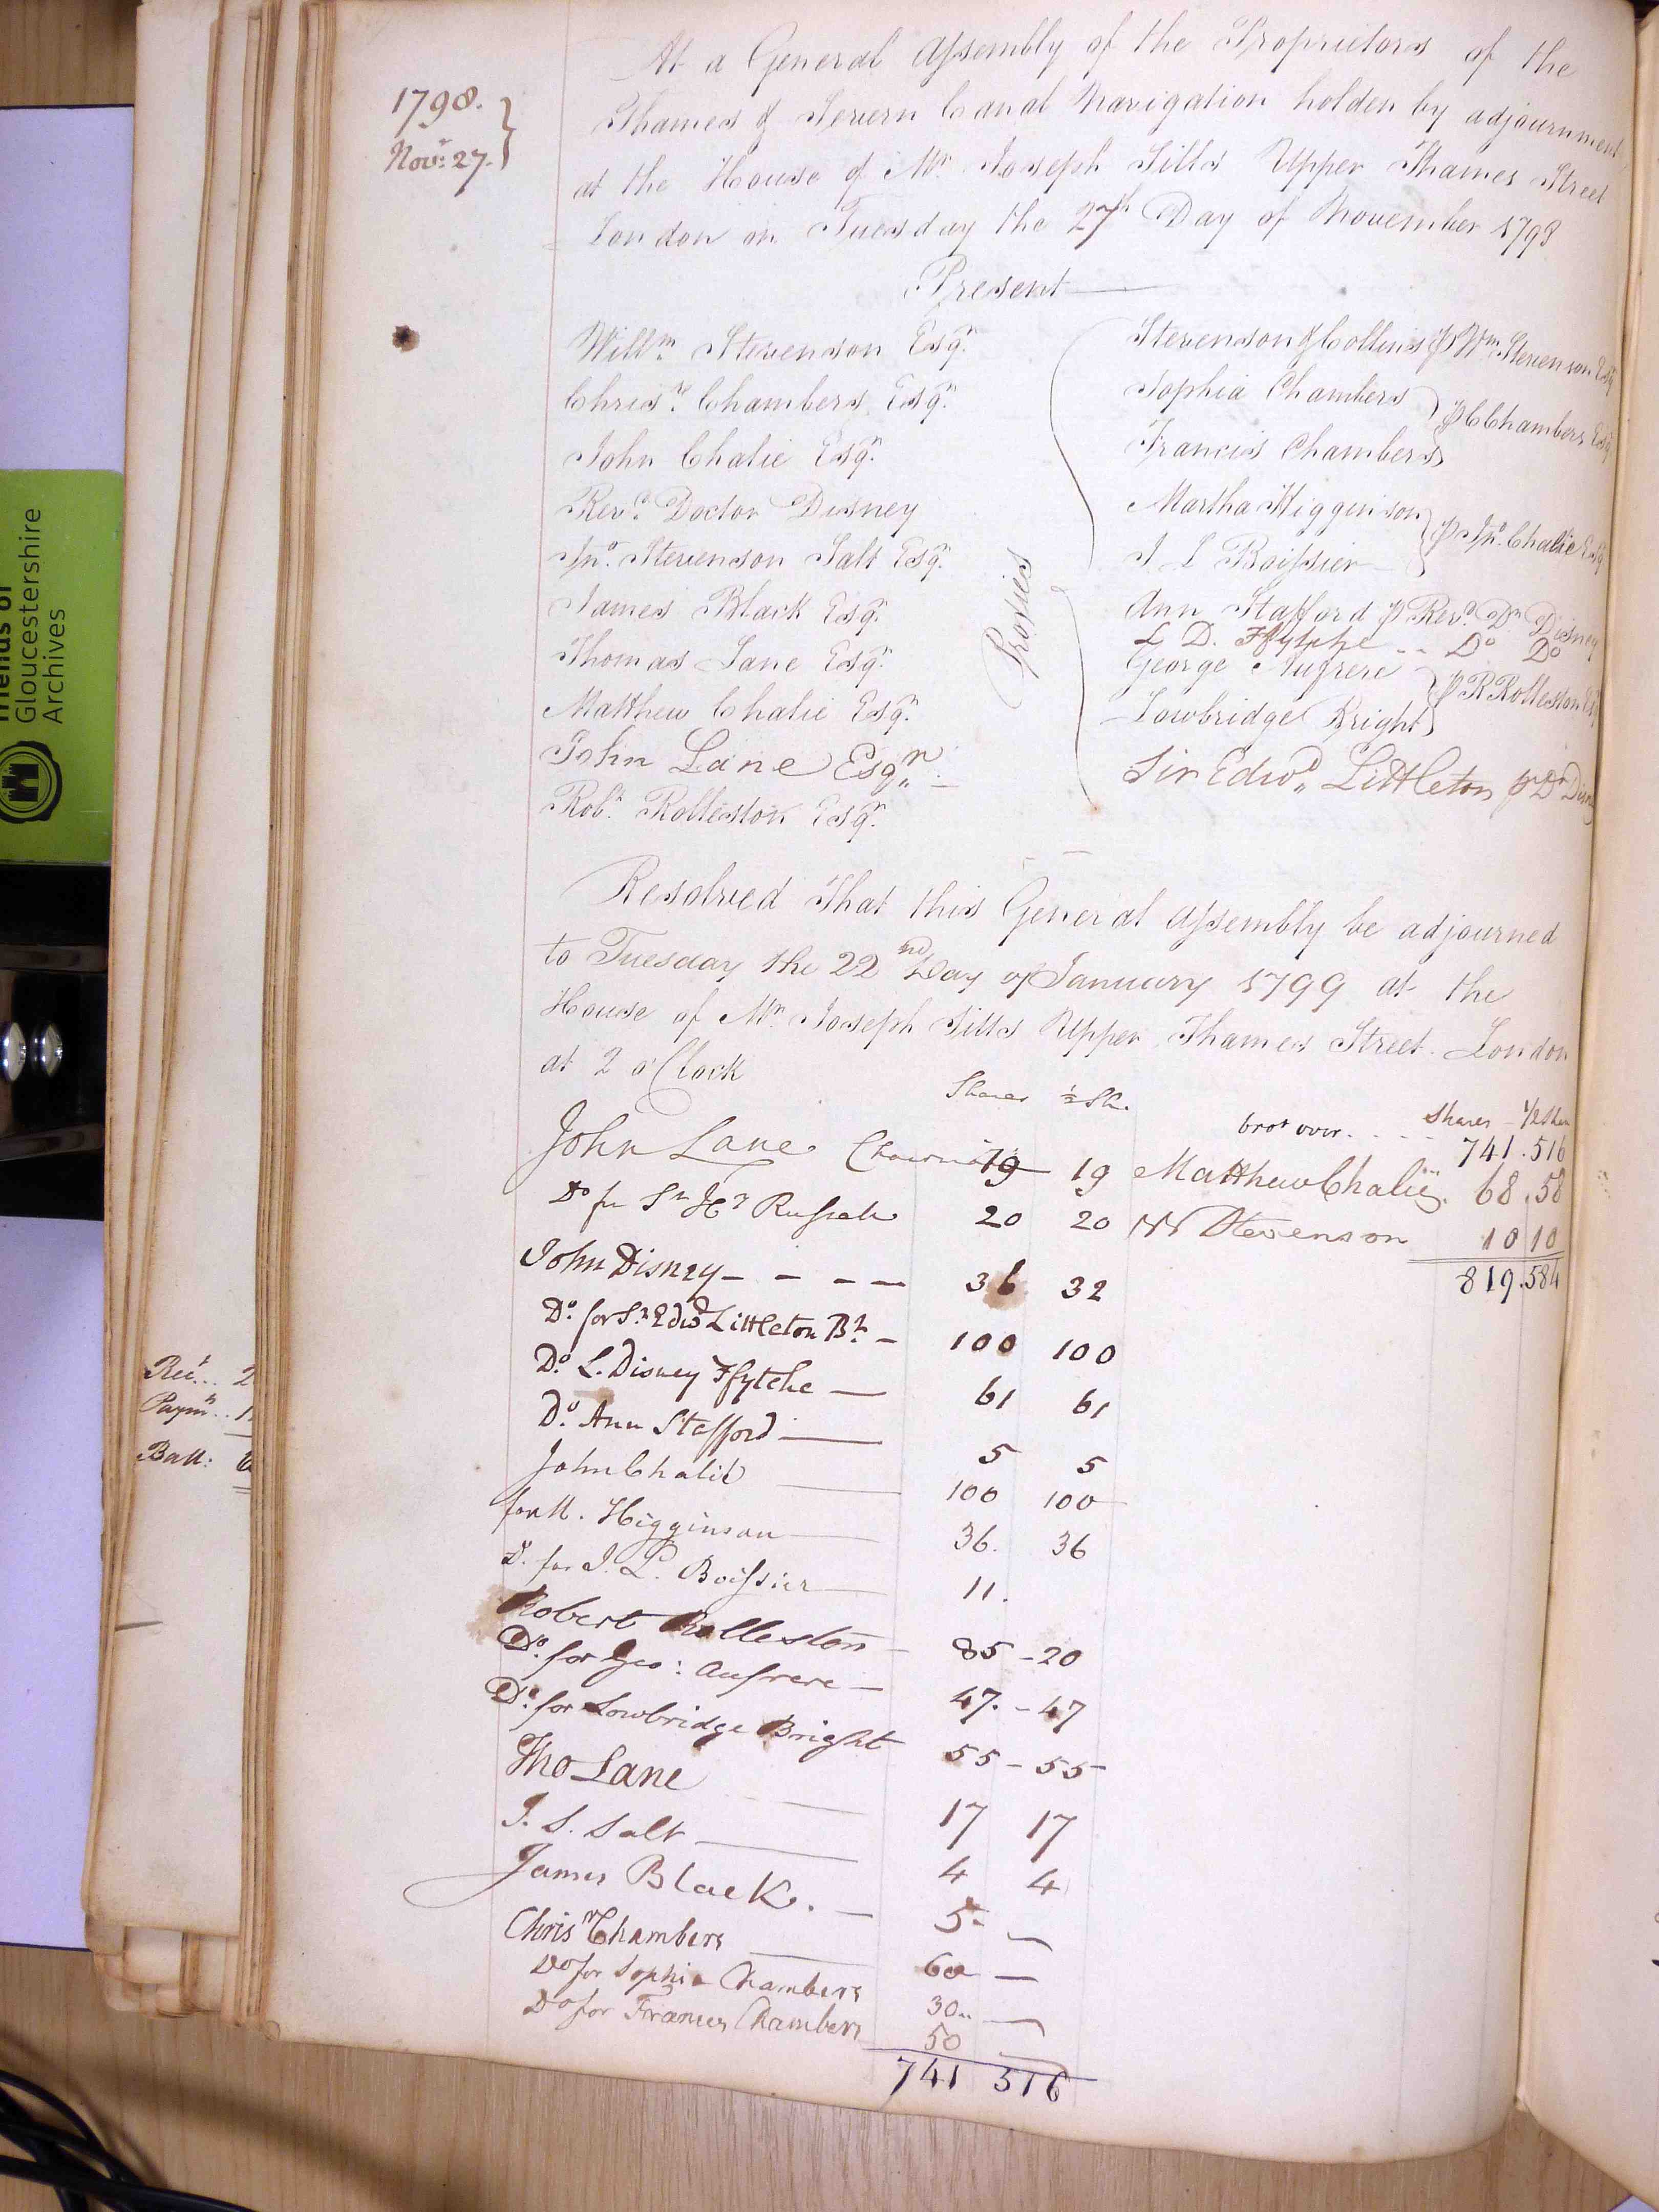 1798.
Novr. 27.
At a General Assembly of the Proprietors of the
Thames & Severn Canal Navigation holden by adjournment
at the House of Mr. Joseph Sills Upper Thames Street
London on Tuesday the 27th Day of November 1798
Present
Willm. Stevenson Esqr.
Chrisr. Chambers Esqr.
John Chalie Esqr.
Revd. Doctor Disney
Jno. Stevenson Salt Esqr.
James Black Esqr.
Thomas Lane Esqr.
Matthew Chalie Esqr.
John Lane Esqr.
Robt. Rolleston Esqr.
Proxies
Stevenson & Collins p Wm. Stevenson Esq
Sophia Chambers
Francis Chambers
p C Chambers Esq
Martha Higginson
J L Boissier
p Jno. Chalie Esq
Ann Stafford p Revd. Dr. Disney
L D. Ffytche -- Do Do
George Aufrere
Lowbridge Bright
p R Rolleston Esq
Sir Edwd. Littleton pr Dr Disney
Resolved That this General Assembly be adjourned
to Tuesday the 22nd Day of January 1799 at the
House of Mr. Joseph Sills Upper Thames Street London
at 2 o'Clock
Shares ½ Sh.
John Lane Chairman 19 19
Do for Sr Hy Russell 20 20
John Disney - - - - 36 32
Do. for Sr. Edwd Littleton Bt. - 100 100
Do. L. Disney Ffytche — 61 61
Do. Ann Stafford — 5 5
John Chalié 100 100
for M. Higginson 36. 36
D. for J. L. Boissier 11.
Robert Rolleston 85 - 20
Do. for Geo: Aufrere - 47. - 47
Do. for Lowbridge Bright 55 - 55
Tho Lane 17 17
J. S. Salt 4 4
James Black. - 5 -
Chrisr Chambers 60 -
Do for Sophia Chambers 30 -
Do for Frances Chambers 50
741 516
brot over. . . . . Shares - 1/2 Shares
741.516
Matthew Chalié. 68.58
W Stevenson 10 10
819.584
Rect... 2
Paymts.. 1
Ball:
Friends of
Gloucestershire
Archives